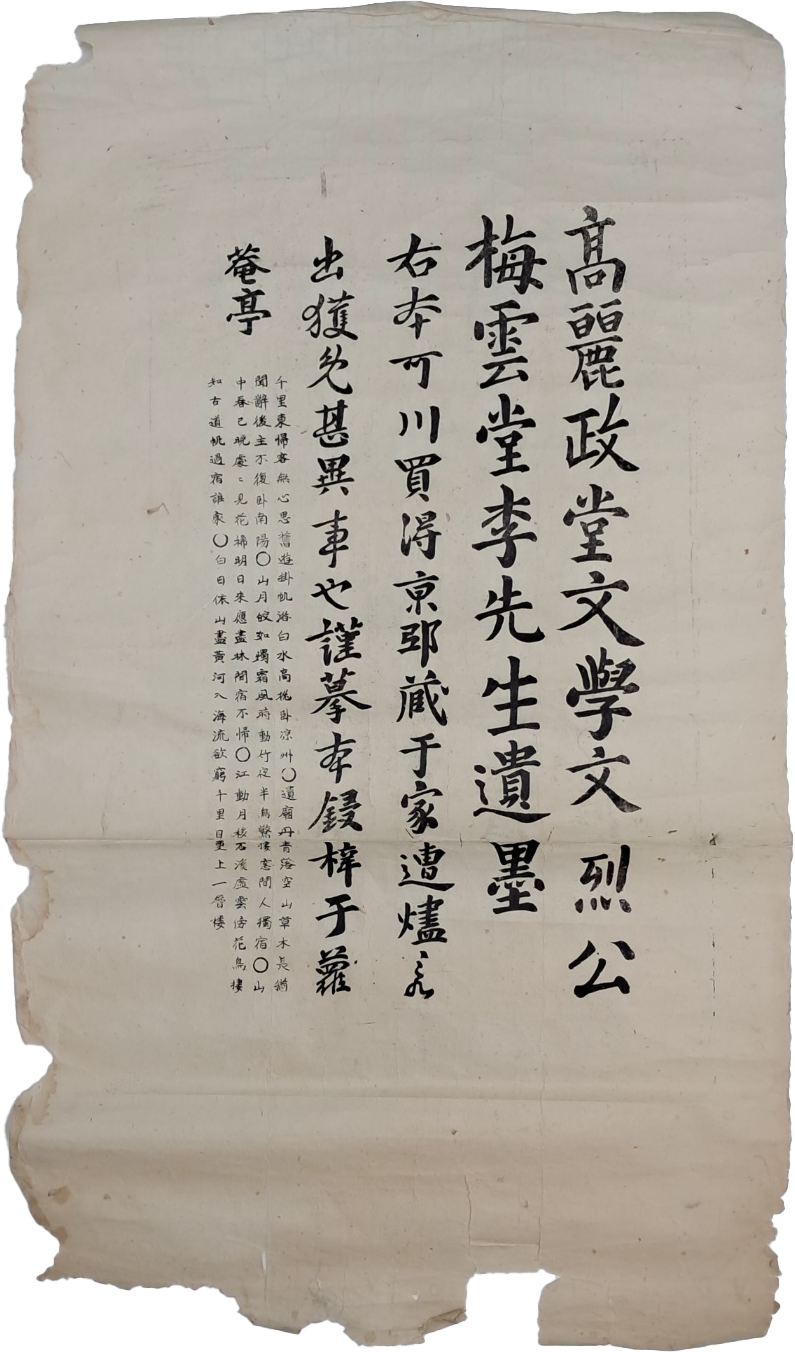 髙麗政堂文學文烈公
梅雲堂李先生遺墨
右夲可川買淂京邸藏于家遭燼
出獲免甚異事也謹摹夲鋟梓于蘿
菴亭
千里東歸客無心思舊遊掛帆游白水高枕卧涼州〇遺廟丹青落空山草木長猶
聞辭後主不復卧南陽〇山月皎如燭霜風時動竹夜半鳥驚棲窓間人獨宿〇山
中春已晚處〻見花稀明日來應盡林間宿不歸〇江動月移石溪虛雲傍花鳥棲
知古道帆過宿誰家〇白日依山盡黃河入海流欲窮千里目更上一層樓